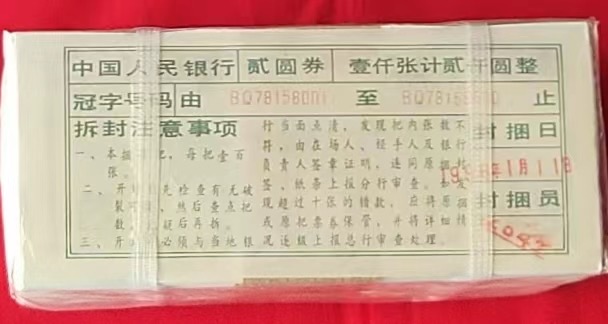 中国人民银行 贰圆券 壹仟张计贰仟圆整
冠字号码 由 BQ78158001 至 BQ7815 止
拆封注意事项
一、本捆 把，每把壹百
张。
二、开 先检查有无破
裂 ，然后查点把
数， 后再拆。
三、开 必须与当地银
行当面点清，发现把内张数不
符，由在场人、经手人及银行
负责人签章证明，连同原捆
签、纸条上报分行审查。如发
现超过十张的错款，应将原捆
或原把票券保管，并将详细情
况逐级上报总行审查处理。
封捆日
19 年1月11日
封捆员